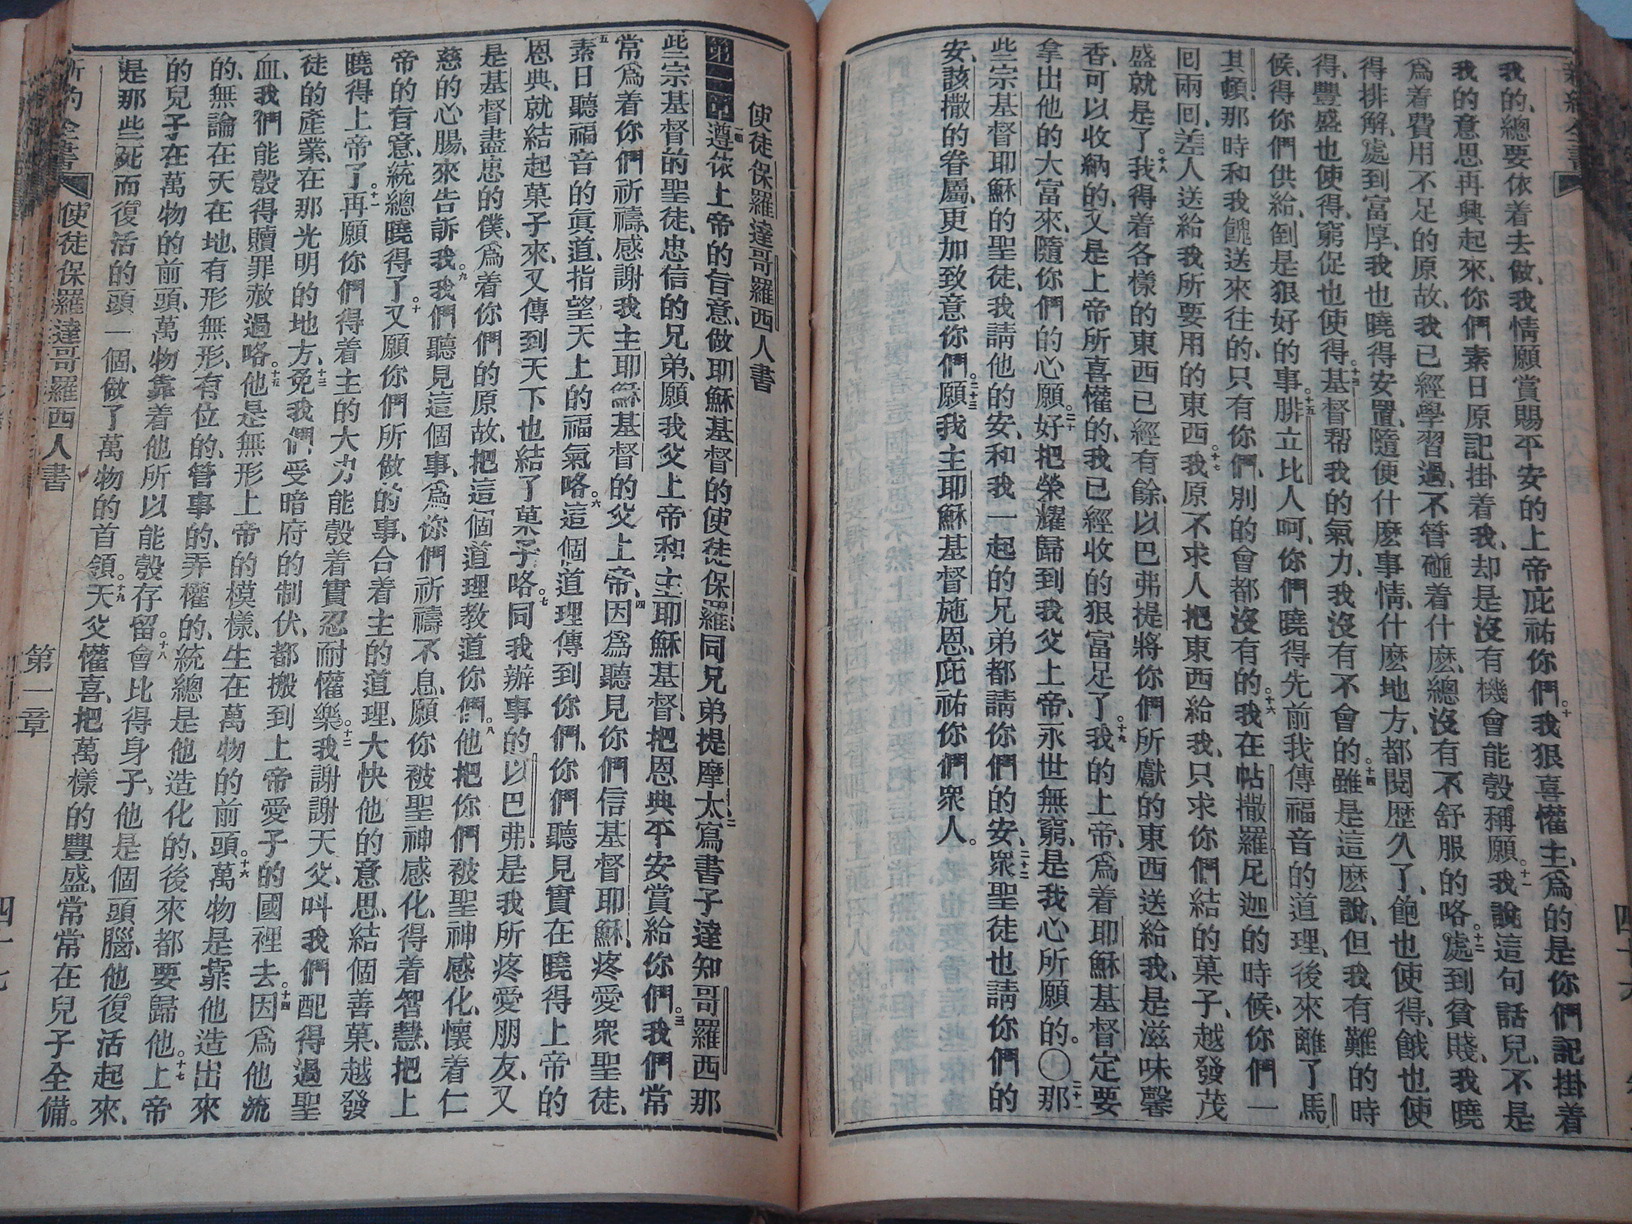 我的、總要依着去做、我情願賞賜平安的上帝庇祐你們。十我狠喜懽主、爲的是你們記掛着
我的意思再興起來、你們素日原記掛着我、却是沒有機會能彀稱願。十一我說這句話兒、不是
爲着費用不足的原故、我已經學習過、不管碰着什麽、總沒有不舒服的咯。十二處到貧賤、我曉
得排解、處到富厚、我也曉得安置、隨便什麽事情、什麽地方、都閱歷久了、飽也使得、餓也使
得、豐盛也使得、窮促也使得。十三基督帮我的氣力、我沒有不會的。十四雖是這麽說、但我有難的時
候、得你們供給、倒是狠好的事。十五腓立比人呵、你們曉得先前我傳福音的道理、後來離了馬
其頓、那時和我餽送來往的、只有你們、別的會都沒有的。十六我在帖撒羅尼迦的時候、你們一
回兩回、差人送給我所要用的東西。十七我原不求人把東西給我、只求你們結的菓子、越發茂
盛就是了。十八我得着各樣的東西已經有餘、以巴弗提將你們所獻的東西送給我、是滋味馨
香、可以收納的、又是上帝所喜懽的、我已經收的狠富足了。十九我的上帝、爲着耶穌基督、定要
拿出他的大富來、隨你們的心願。二十好把榮耀歸到我父上帝、永世無窮、是我心所願的。〇二十一那
些宗基督耶穌的聖徒、我請他的安、和我一起的兄弟都請你們的安。二十二衆聖徒也請你們的
安、該撒的眷屬、更加致意你們。二十三願我主耶穌基督施恩、庇祐你們衆人。
使徒保羅達哥羅西人書
第一章一遵依上帝的旨意、做耶穌基督的使徒保羅、同兄弟提摩太、二寫書子達知哥羅西那
些宗基督的聖徒、忠信的兄弟、願我父上帝和主耶穌基督、把恩典平安賞給你們。三我們常
常爲着你們祈禱、感謝我主耶穌基督的父上帝、四因爲聽見你們信基督耶穌、疼愛衆聖徒、
五素日聽福音的眞道、指望天上的福氣咯。六這個道理傳到你們、你們聽見實在曉得上帝的
恩典、就結起菓子來、又傳到天下也結了菓子咯。七同我辦事的以巴弗、是我所疼愛朋友、又
是基督盡忠的僕、爲着你們的原故、把這個道理教道你們。八他把你們被聖神感化、懷着仁
慈的心腸、來告訴我。九我們聽見這個事、爲你們祈禱不息、願你被聖神感化、得着智慧、把上
帝的旨意、統總曉得了。十又願你們所做的事、合着主的道理、大快他的意思、結個善菓、越發
曉得上帝了。十一再願你們得着主的大力、能彀着實忍耐懽樂。十二我謝謝天父、呌我們配得過聖
徒的產業、在那光明的地方。十三免我們受暗府的制伏、都搬到上帝愛子的國裡去。十四因爲他流
血、我們能彀得贖罪赦過咯。十五他是無形上帝的模樣、生在萬物的前頭。十六萬物是靠他造出來
的、無論在天在地、有形無形、有位的、管事的、弄權的、統總是他造化的、後來都要歸他。十七上帝
的兒子在萬物的前頭、萬物靠着他所以能彀存留。十八會比得身子、他是個頭腦、他復活起來、
是那些死而復活的頭一個、做了萬物的首領。十九天父懽喜、把萬樣的豐盛、常常在兒子全備。
使徒保羅達哥羅西人書
第一章
四十七